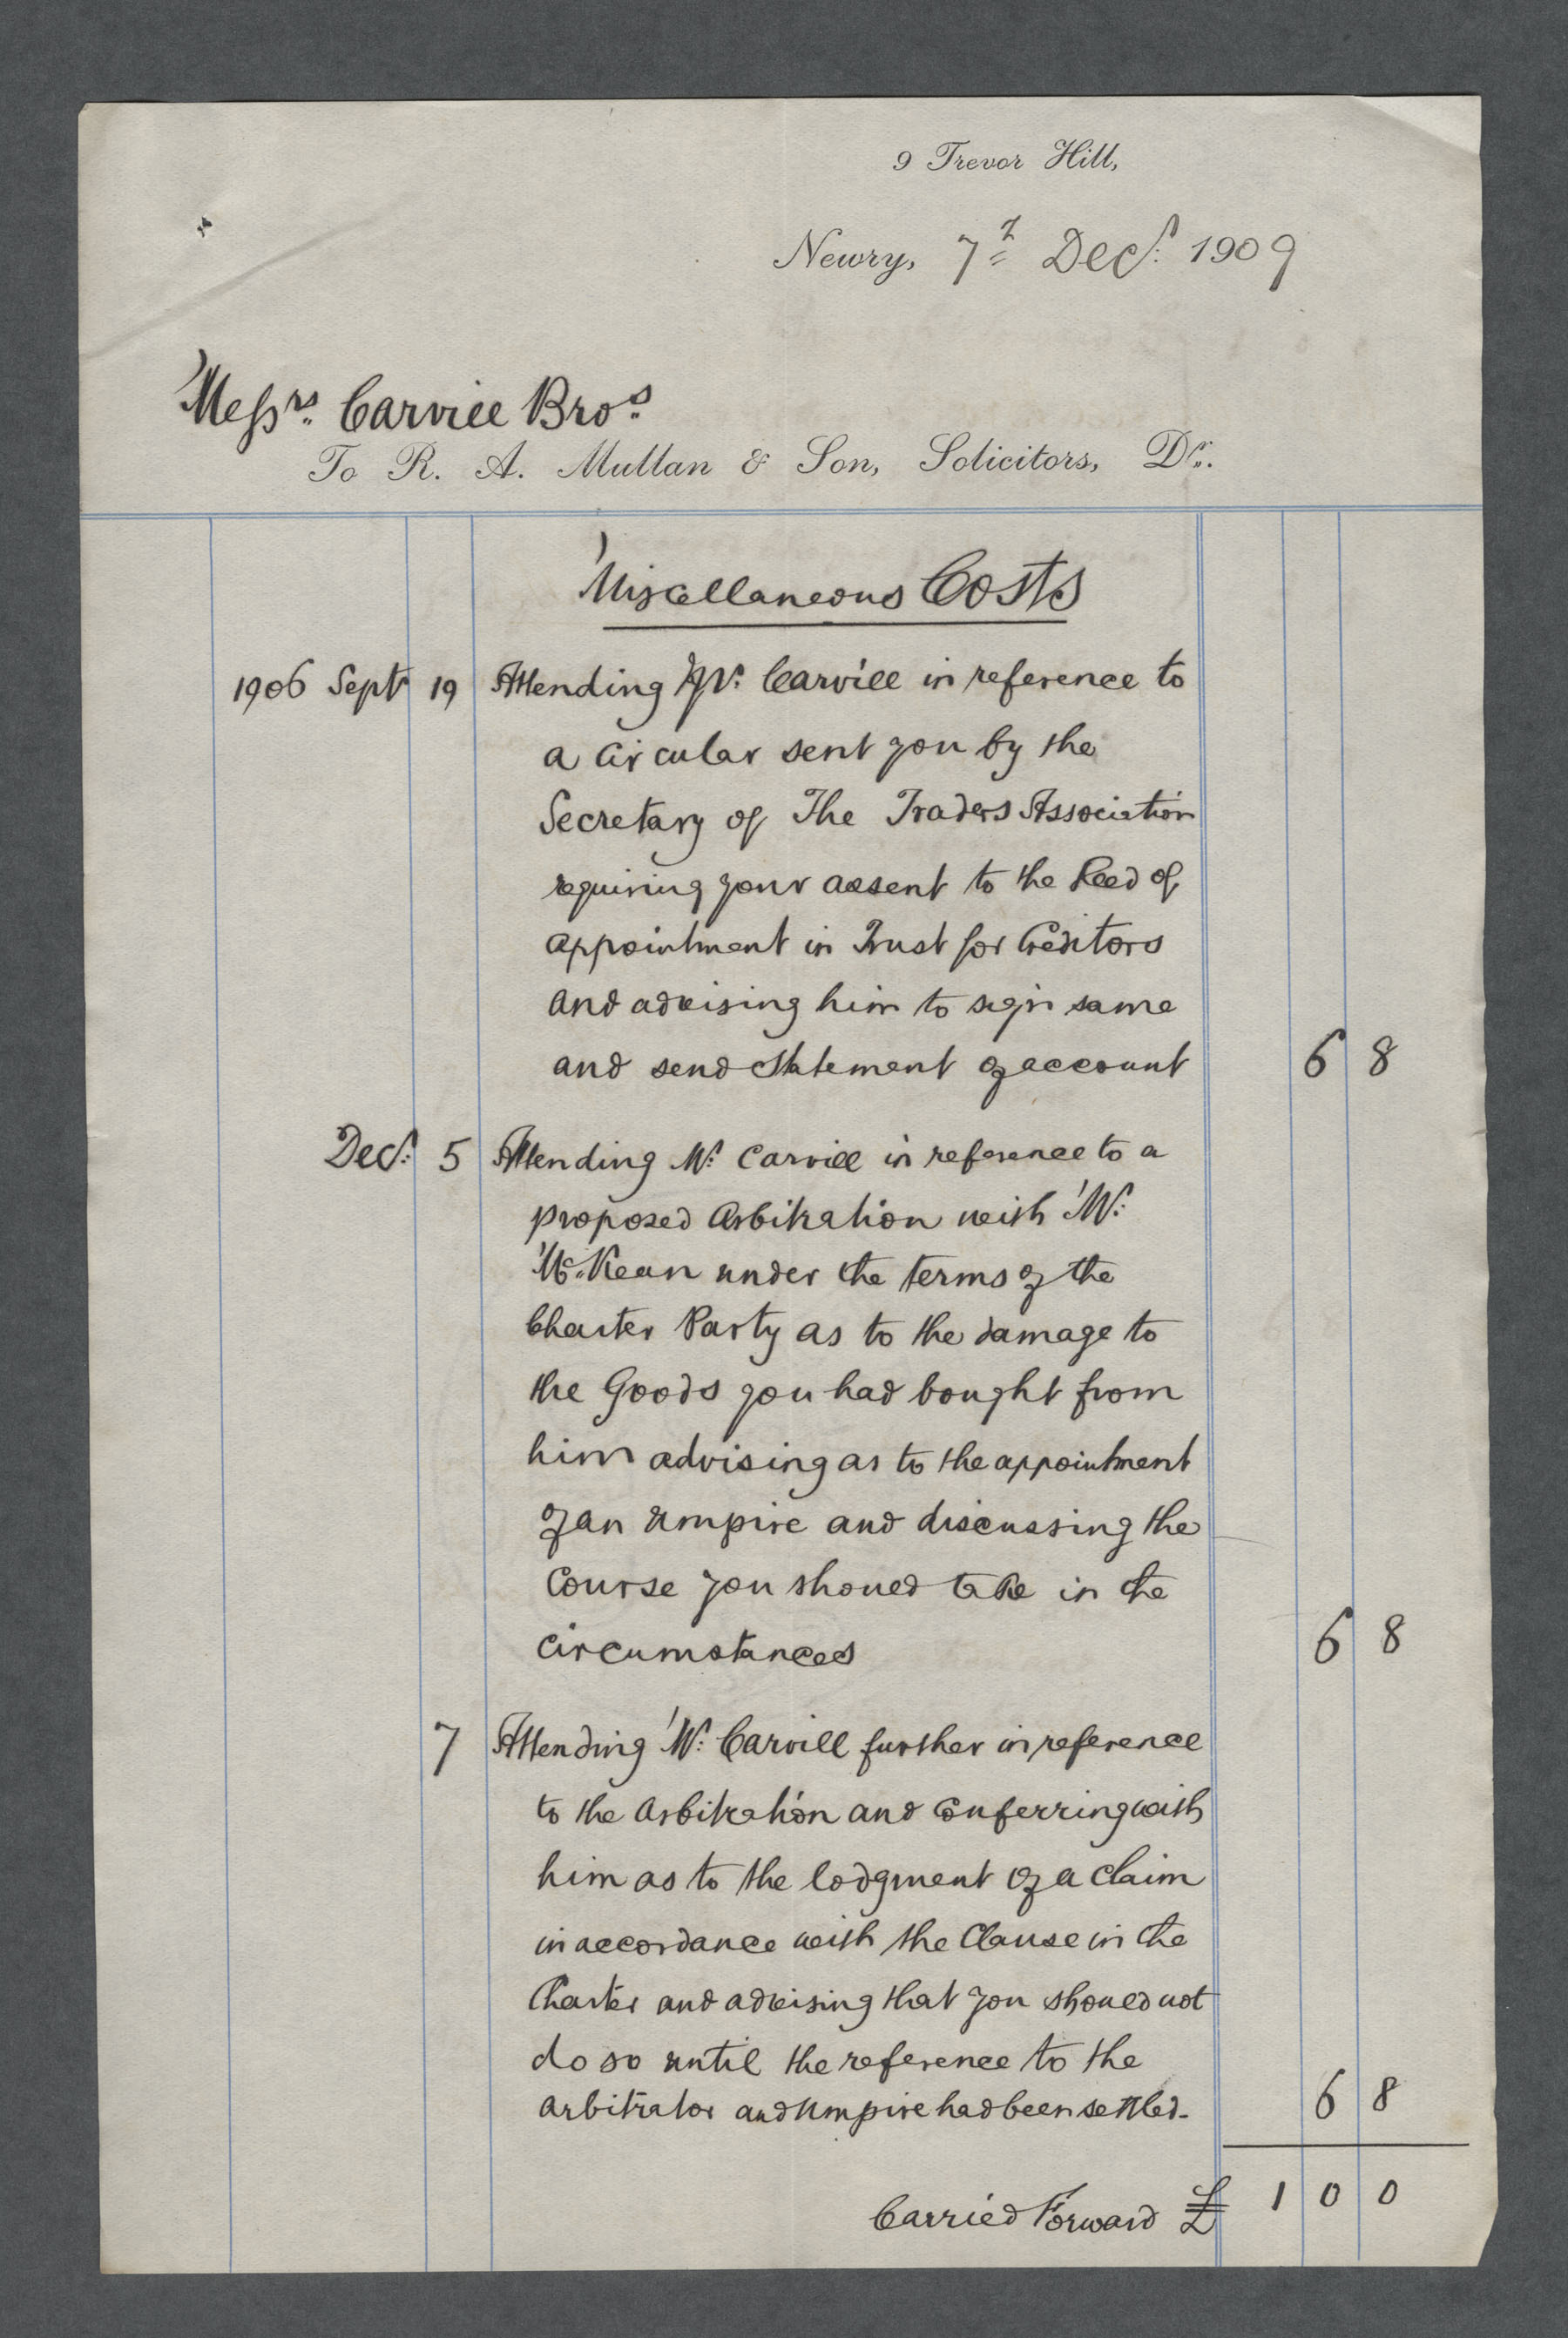 9 Trevor Hill,
Newry, 7th Decr. 1909
Messrs. Carvill Bros.
To R. A. Mullan & Son, Solicitors, Dr.
Miscellaneous Costs
1906 Sept 19 Attending Mr. Carvill in reference to
a Circular sent you by the
Secretary of The Traders Association
requiring your assent to the Deed of
appointment in Trust for Creditors
and advising him to sign same
and send statement of account 6 8
Decr. 5 Attending Mr. Carvill in reference to a
proposed Arbitration with Mr.
McKean under the terms of the
Charter Party as to the damage to
the Goods you had bought from
him advising as to the appointment
of an Umpire and discussing the
Course you should take in the
circumstances 6 8
7 Attending Mr. Carvill further in reference
to the Arbitration and conferring with
him as to the lodgment of a claim
in accordance with the Clause in the
Charter and advising that you should not
do so until the reference to the
arbitrator and Umpire had been settled. 6 8
Carried Forward £ 1 0 0